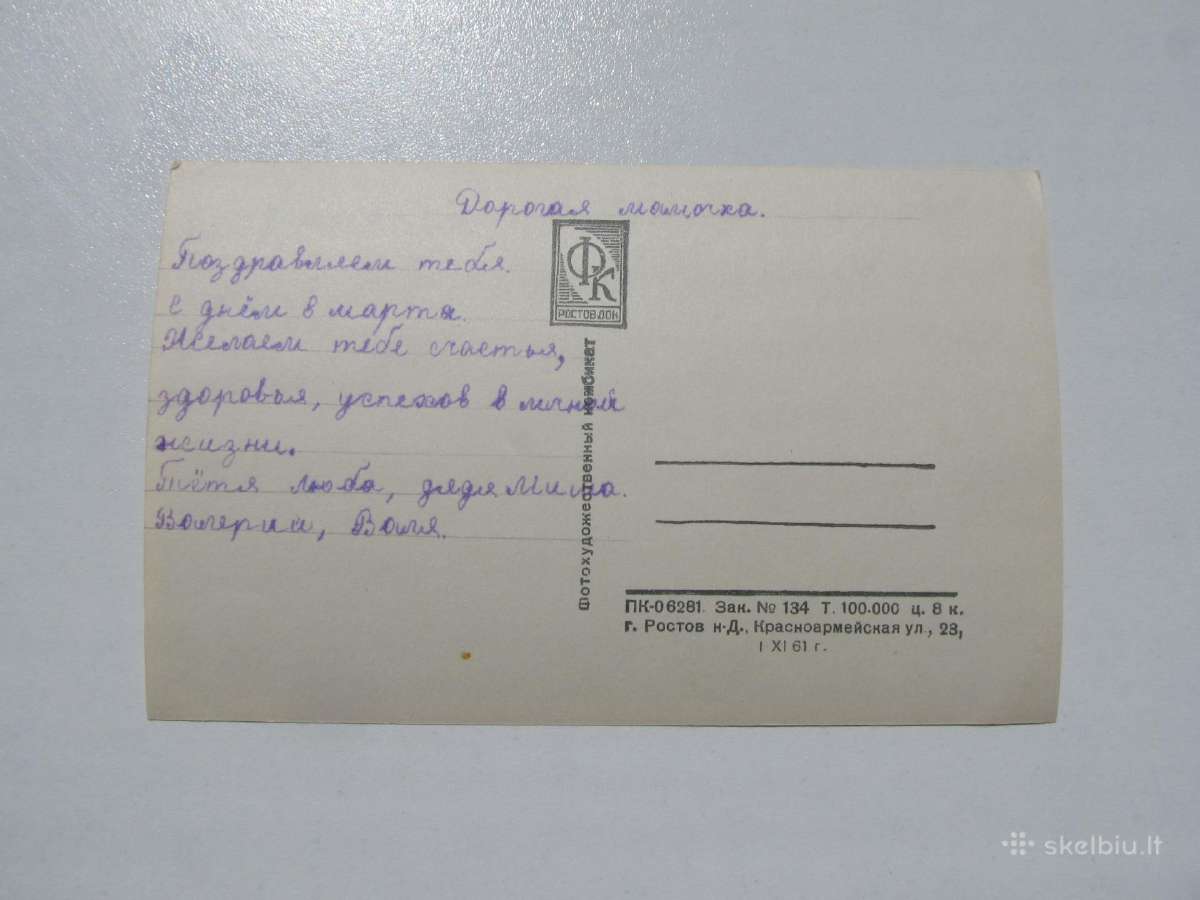 Дорогая мамочка.
Поздравляем тебя
с днём 8 марта.
Желаем тебе счастья,
здоровья, успехов в личной
жизни.
Тётя люба, дядя Миша.
Валерий, Валя.
ФК
РОСТОВДОН
Фотохудожественный комбикат
ПК-06281. Зак. № 134 Т. 100.000 ц. 8 к.
г. Ростов н-Д., Красноармейская ул., 23,
1 XI 61 г.
skelbiu.lt